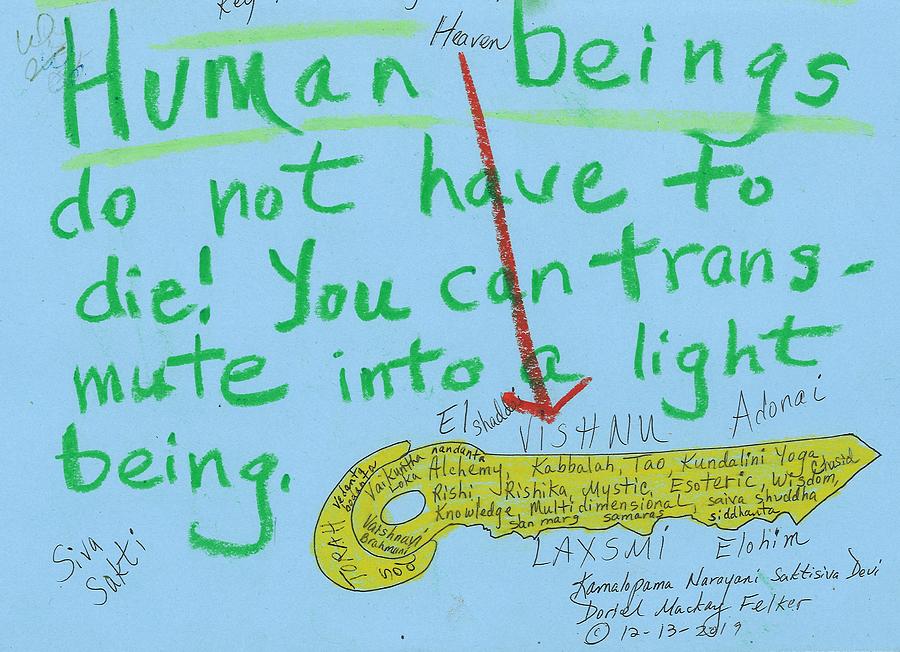 Heaven
Human beings
do not have to
die! You can trans-
mute into a light
being.
El shaddai
VISHNU
Adonai
nandanta
Vedanta
bedanta
Vaikuntha
Loka
Alchemy, Kabbalah, Tao, Kundalini Yoga,
Chasid
Rishi, Rishika, Mystic, Esoteric, Wisdom,
Knowledge, Multidimensional, saiva shuddha
san marg samaras siddhanta
TORAH
Vaishnavi
Brahmani
Siva
Sakti
LAXSMI Elohim
Kamalopama Narayani Saktisiva Devi
Doriel Mackay Felker
© 12-13-2019